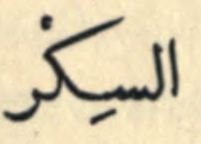 السِكْر